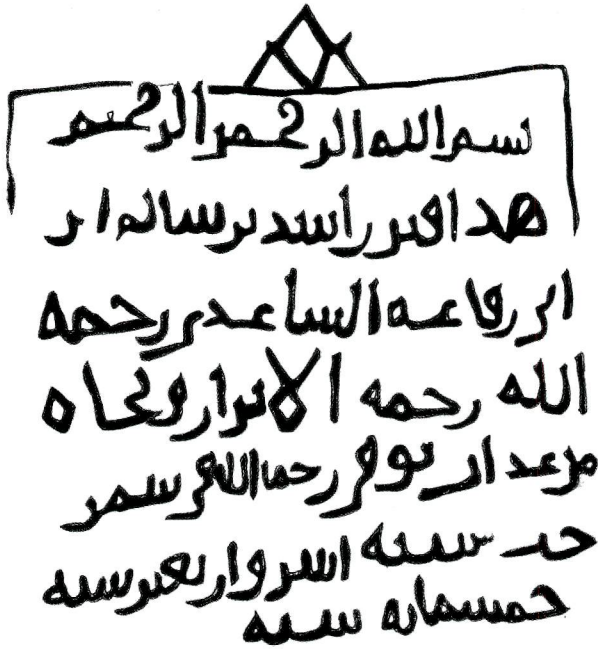 بسم الله الرحمن الرحيم
هذا قبر راشد بن سالم ابن
ابن رفاعة الساعدي رحمه
الله رحمة الابرار ونجاه
من توفي رحم الله في شهر
سنة اثنين واربعين سنة
خمسمائة سنة